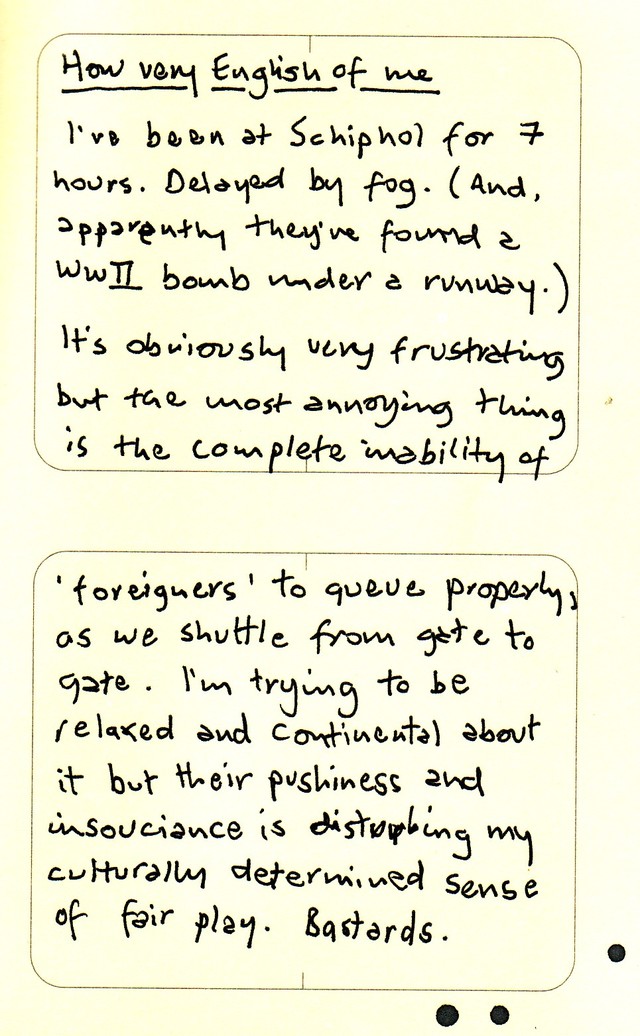 How very English of me
I've been at Schiphol for 7
hours. Delayed by fog. (And,
apparently they've found a
WWII bomb under a runway.)
It's obviously very frustrating
but the most annoying thing
is the complete inability of
'foreigners' to queue properly,
as we shuttle from gate to
gate. I'm trying to be
relaxed and continental about
it but their pushiness and
insouciance is disturbing my
culturally determined sense
of fair play. Bastards.